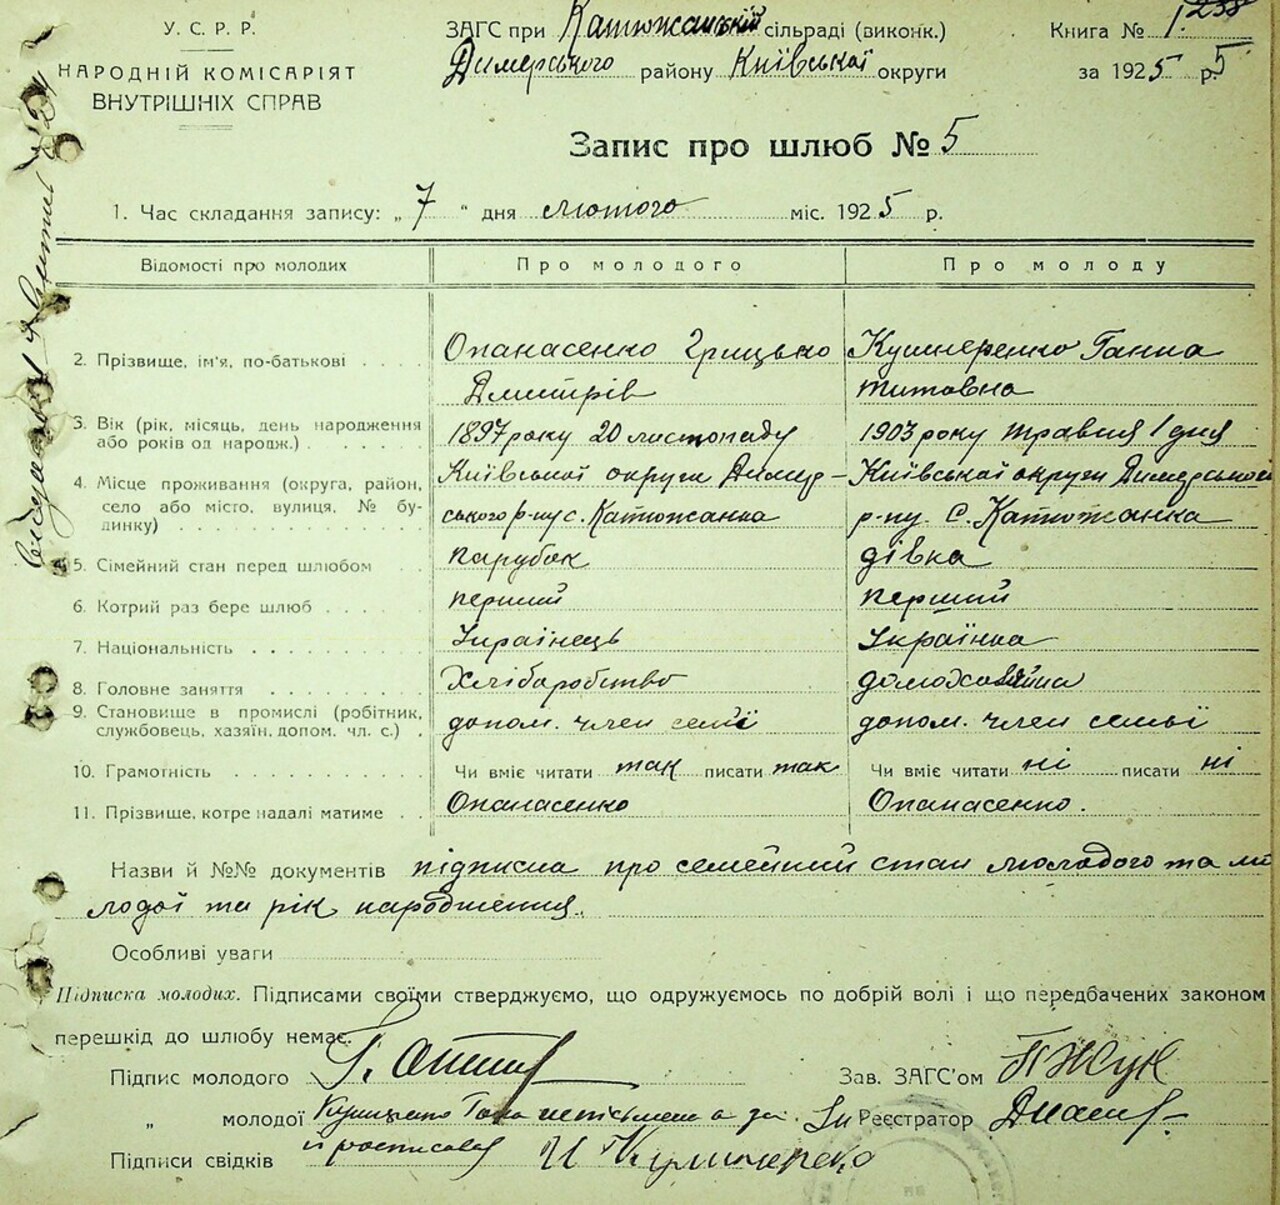 У. С. Р. Р.
НАРОДНІЙ КОМІСАРІЯТ
ВНУТРІШНІХ СПРАВ
ЗАГС при Катюжанській сільраді (виконк.)
Димерського району Київської округи
Книга № 1. 238
за 1925 р. 5
Запис про шлюб № 5
1. Час складання запису: „ 7 “ дня лютого міс. 1925 р.
Відомості про молодих Про молодого Про молоду
2. Прізвище, ім'я, по-батькові . . . . Опанасенко Грицько Кушнеренко Ганна
Дмитрів Титовна
3. Вік (рік, місяць, день народження 1897 року 20 листопаду 1903 року травня 1 дня
або років од народж.) . . . . .
4. Місце проживання (округа, район, Київської округи Димер- Київської округи Димерської
село або місто, вулиця, № бу- ського р-ну с. Катюжанка р-ну. с. Катюжанка
динку) . . . . . . . . . .
5. Сімейний стан перед шлюбом . . парубок дівка
6. Котрий раз бере шлюб . . . . . перший перший
7. Національність . . . . . . . . Українець Українка
8. Головне заняття . . . . . . . . Хліборобство домохозяйка
9. Становище в промислі (робітник, допом. член семї допом. член семьї
службовець, хазяїн, допом. чл. с.) .
10. Грамотність . . . . . . . . . . Чи вміє читати так писати так Чи вміє читати ні писати ні
11. Прізвище, котре надалі матиме . . Опанасенко Опанасенко.
Назви й №№ документів підписка про семейний стан молодого та мо
лодої та рік народження.
Особливі уваги
Підписка молодих. Підписами своїми стверджуємо, що одружуємось по добрій волі і що передбачених законом
перешкід до шлюбу немає.
Підпис молодого Г.
Зав. ЗАГС'ом Жук
„ молодої Гана неписьмена а за
Реєстратор
й росписався
Підписи свідків И Кушнеренко